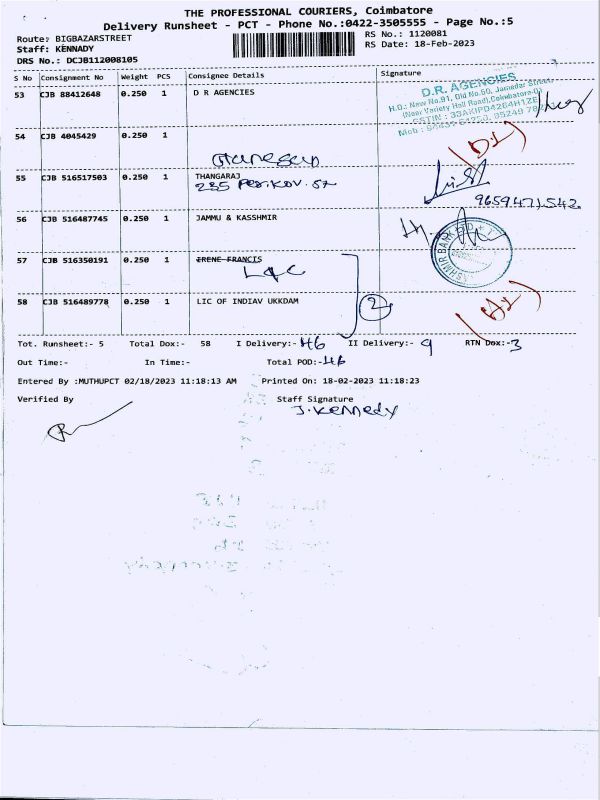 THE PROFESSIONAL COURIERS, Coimbatore
Delivery Runsheet - PCT - Phone No.:0422-3505555 - Page No.:5
Route: BIGBAZARSTREET
RS No.: 1120081
Staff: KENNADY
RS Date: 18-Feb-2023
DRS No.: DCJB112008105
S No Consignment No Weight PCS Consignee Details Signature
53 CJB 88412648 0.250 1 D R AGENCIES
D.R. AGENCIES
H.O.: New No.91, Old No.50, Jamedar Street
(Near Variety Hall Road), Coimbatore-
GSTIN : 33AKIPD4264H1ZE
54 CJB 4045429 0.250 1
(D1)
55 CJB 516517503 0.250 1 THANGARAJ
9659471542
56 CJB 516487745 0.250 1 JAMMU & KASSHMIR
57 CJB 516350191 0.250 1 IRENE FRANCIS
58 CJB 516489778 0.250 1 LIC OF INDIAV UKKDAM
2
Tot. Runsheet:- 5 Total Dox:- 58 I Delivery:- 46 II Delivery:- 9 RTN Dox:- 3
Out Time:- In Time:- Total POD:- 46
Entered By :MUTHUPCT 02/18/2023 11:18:13 AM Printed On: 18-02-2023 11:18:23
Verified By Staff Signature
J. Kennedy